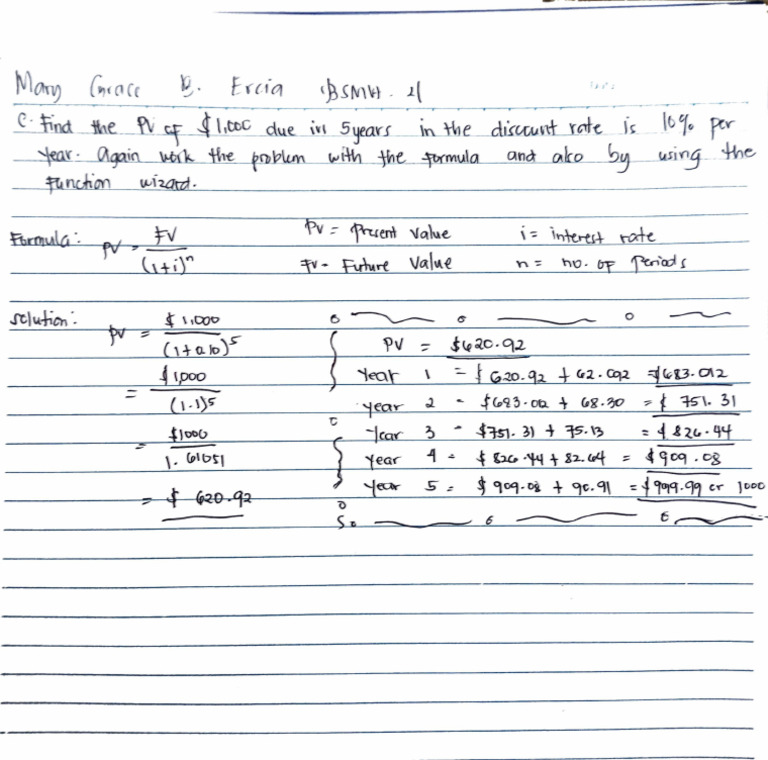 Mary Grace B. Ercia BSMH. 21
C. Find the PV of $1,000 due in 5years in the discount rate is 10% per
year. Again work the problem with the formula and also by using the
function wizard.
Formula: PV = FV / (1+i)^n PV = Present Value i = interest rate
FV = Future Value n = no. of periods
Solution: PV = $1,000 / (1+0.10)^5
= $1,000 / (1.1)^5
= $1000 / 1.61051
= $ 620.92
PV = $620.92
Year 1 = $620.92 + 62.092 = $683.012
year 2 = $683.012 + 68.30 = $ 751.31
Year 3 = $751.31 + 75.13 = $826.44
Year 4 = $826.44 + 82.64 = $909.08
Year 5 = $909.08 + 90.91 = $999.99 or 1000